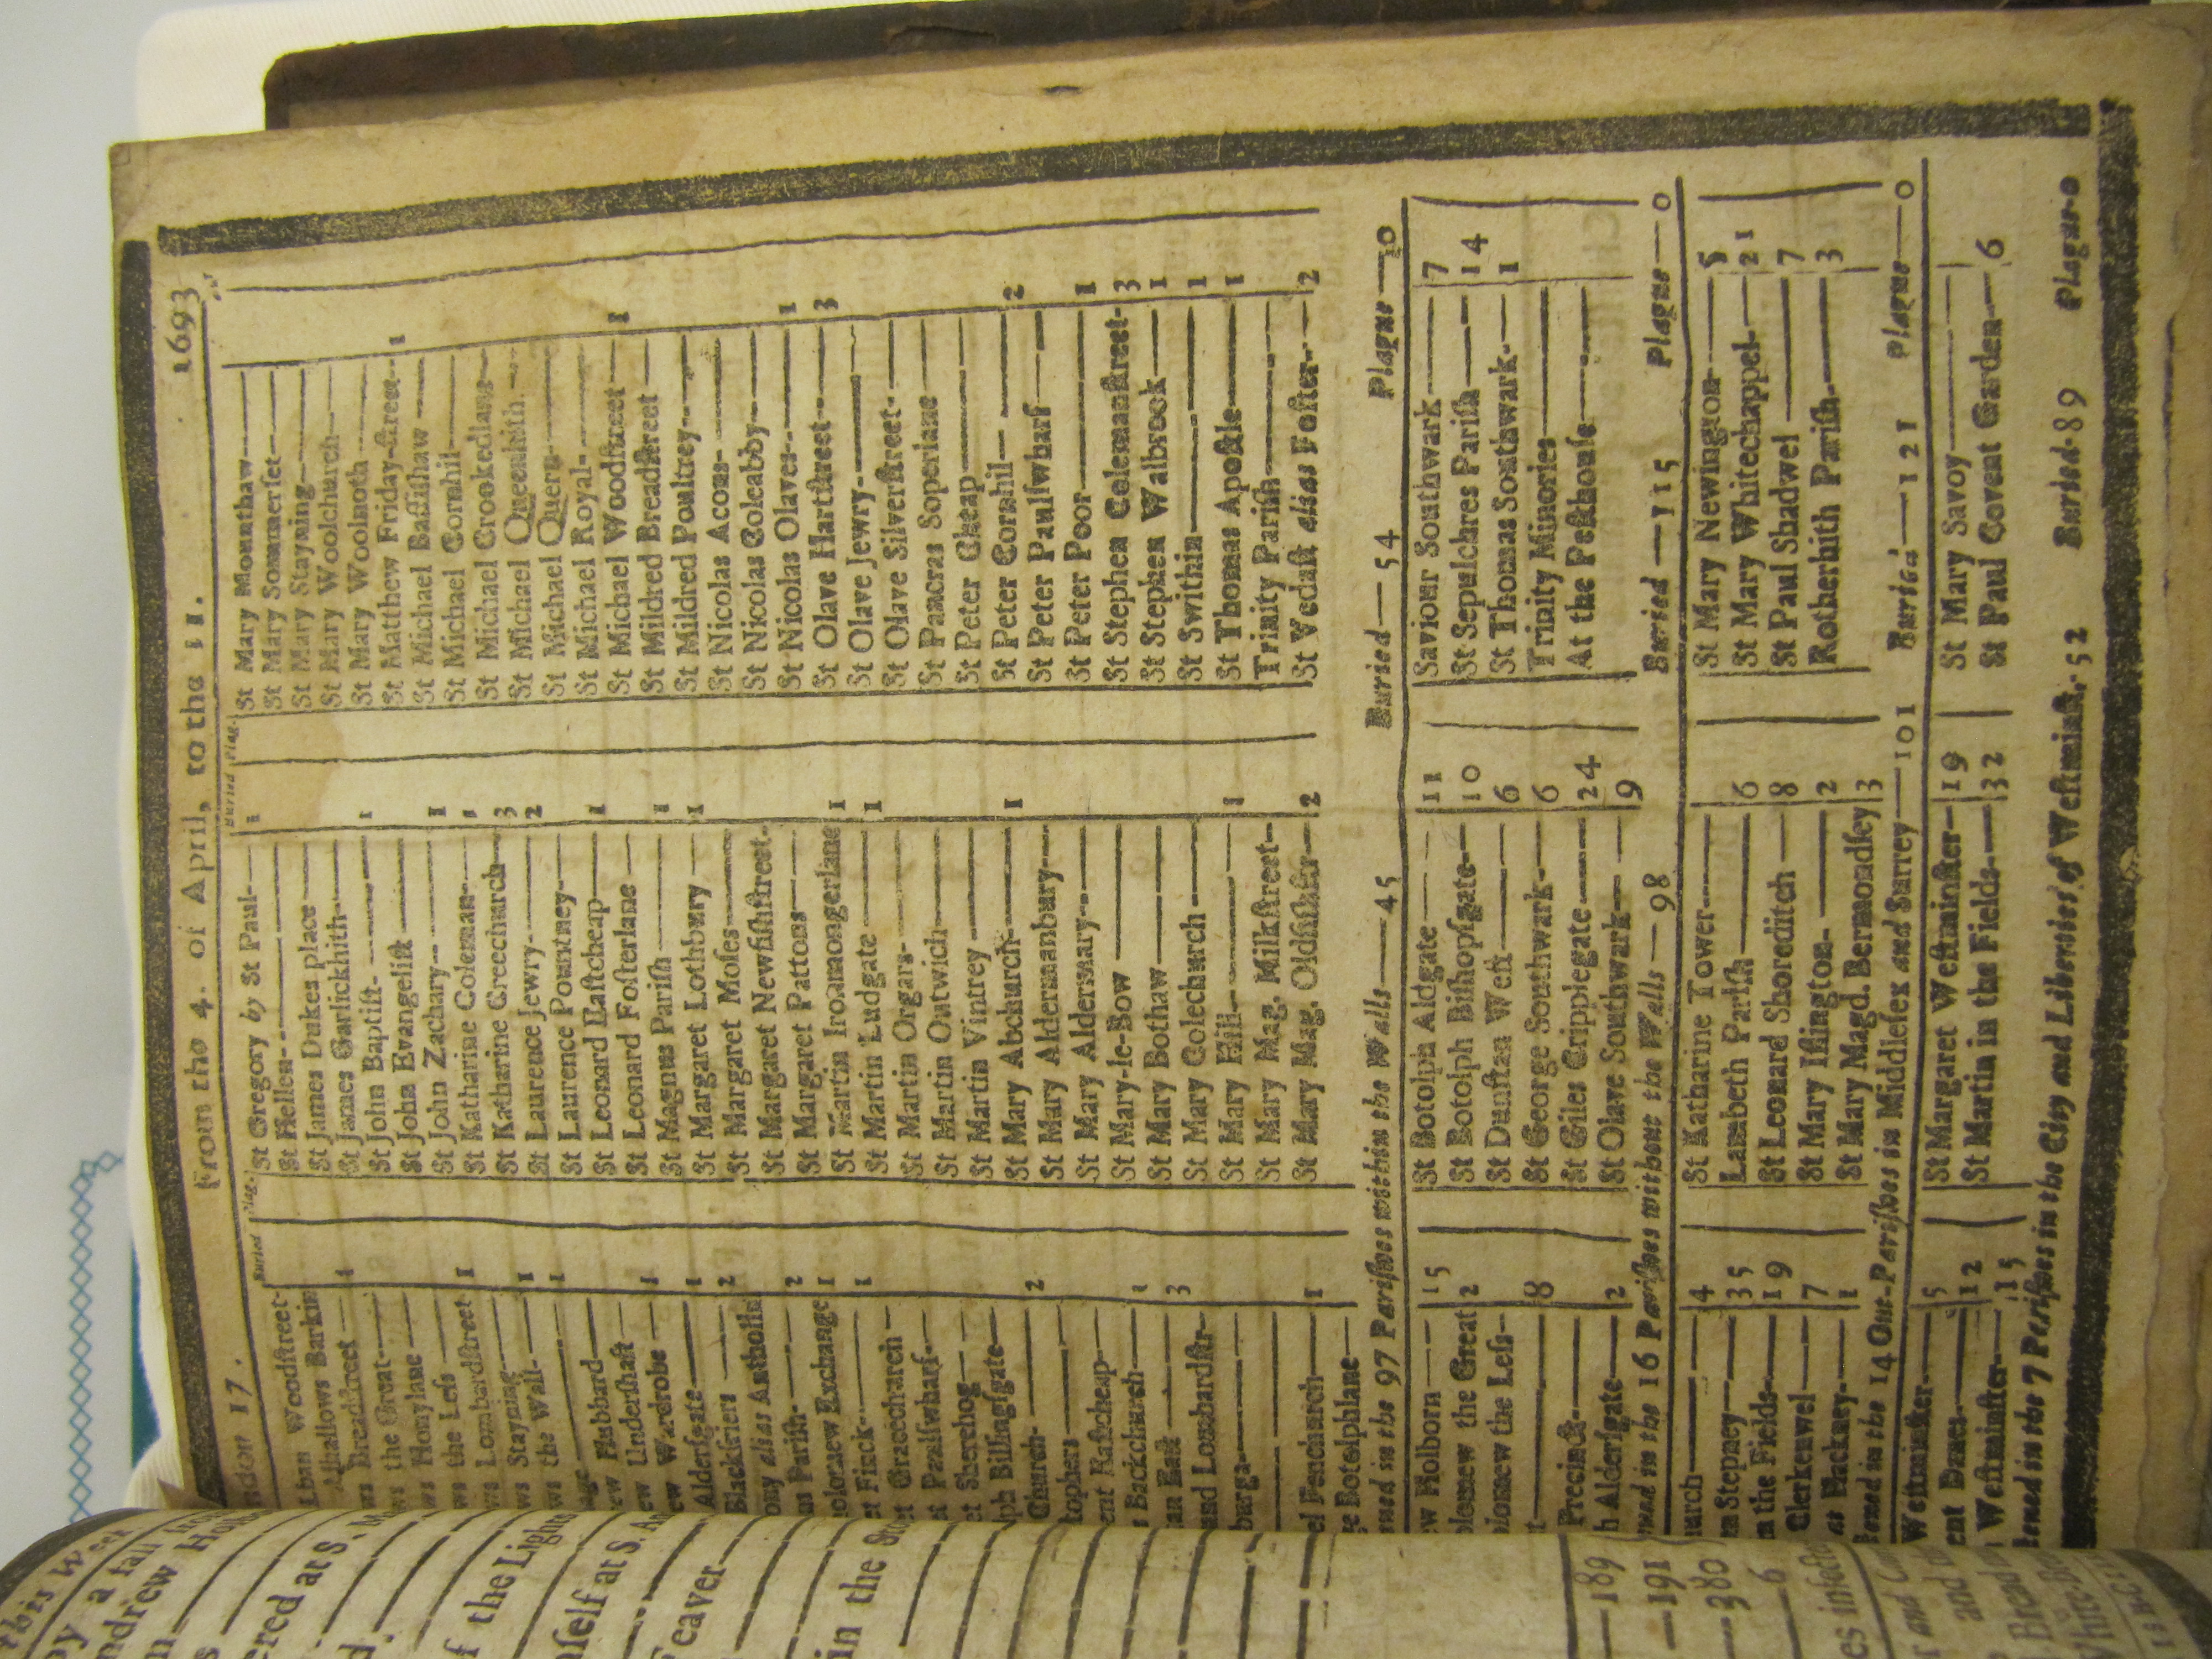 ndon 17. From the 4. of April, to the 11. 1693
Buried Plag.
Lban Woodſtreet-
Alhallows Barkin
ws Breadſtreet — 1
ws the Great——
ws Honylane ——
ws the Leſs —— 1
ws Lombardſtreet
ws Stayning—— 1
ws the Wall- —— 1
ew Hubbard——
ew Underſhaft — 1
ew Wardrobe — 1
Alderſgate—— 2
Blackfriers ——
ony alias Antholin
us Pariſh- —— 2
olomew Exchange 1
et Finck—— 1
et Gracechurch —
et Paulſwharf-—
et Sherehog— —
ph Billingſgate—
Church- —— 2
tophers ——
ent Eaſtcheap—
s Backchurch— 1
an Eaſt —— 3
und Lombardſtr-
burga-——
el Fenchurch— 1
ge Botolphlane—
Buried Plag.
St Gregory by St Paul-— 1
St Hellen- ———
St James Dukes place ——
St James Garlickhith-——
St John Baptiſt- —— 1
St John Evangeliſt ——
St John Zachary-- —— 1
St Katharine Coleman-— 1
St Katharine Creechurch— 3
St Laurence Jewry-—— 2
St Laurence Pountney-—
St Leonard Eaſtcheap— 1
St Leonard Foſterlane —
St Magnus Pariſh —— 1
St Margaret Lothbury — 1
St Margaret Moſes-——
St Margaret Newfiſhſtreet-
St Margaret Pattons——
St Martin Ironmongerlane 1
St Martin Ludgate —— 1
St Martin Orgars-——
St Martin Outwich-——
St Martin Vintrey ——
St Mary Abchurch-—— 1
St Mary Aldermanbury-—
St Mary Aldermary-—
St Mary-le-Bow ——
St Mary Bothaw——
St Mary Colechurch ——
St Mary Hill- —— 1
St Mary Mag. Milkſtreet-
St Mary Mag. Oldfiſhſtr-— 2
St Mary Mounthaw——
St Mary Sommerſet——
St Mary Stayning-——
St Mary Woolchurch—
St Mary Woolnoth ——
St Matthew Friday-ſtreet-- 1
St Michael Baſſiſhaw ——
St Michael Cornhil-——
St Michael Crookedlane—
St Michael Queenhith. —
St Michael Quern-——
St Michael Royal- ——
St Michael Woodſtreet — 1
St Mildred Breadſtreet —
St Mildred Poultrey-—
St Nicolas Acons- ——
St Nicolas Coleabby-—
St Nicolas Olaves-.—— 1
St Olave Hartſtreet-—— 3
St Olave Jewry-——
St Olave Silverſtreet- —
St Pancras Soperlane —
St Peter Cheap——
St Peter Cornhil— —— 2
St Peter Paulſwharf——
St Peter Poor—— 1
St Stephen Colemanſtreet- 3
St Stephen Walbrook— 1
St Swithin——— 1
St Thomas Apoſtle—— 1
Trinity Pariſh———
St Vedaſt alias Foſter-— 2
in the 97 Pariſhes within the Walls——45 Buried—54 Plague—0
ew Holborn —— 15
olomew the Great 2
olomew the Leſs-
8
Precinct—
h Alderſgate— 2
St Botolph Aldgate —— 11
St Botolph Biſhopſgate-— 10
St Dunſtan Weſt —— 6
St George Southwark-— 6
St Giles Cripplegate —— 24
St Olave Southwark-— 9
Saviour Southwark—— 7
St Sepulchres Pariſh—— 14
St Thomas Southwark-— 1
Trinity Minories——
At the Peſthouſe——
in the 16 Pariſhes without the Walls—98 Buried—115 Plague—0
urch —— 4
n Stepney— 35
n the Fields- 19
Clerkenwel— 7
at Hackney-— 1
St Katharine Tower-——
Lambeth Pariſh—— 6
St Leonard Shoreditch — 8
St Mary Iſlington- —— 2
St Mary Magd. Bermondſey 3
St Mary Newington—— 5
St Mary Whitechappel-— 21
St Paul Shadwel —— 7
Rotherhith Pariſh-—— 3
in the 14 Out-Pariſhes in Middleſex and Surrey—101 Buried—121 Plague—0
Weſtminſter-— 5
ent Danes-—— 12
Weſtminſter-— 15
St Margaret Weſtminſter— 19
St Martin in the Fields-— 32
St Mary Savoy———
St Paul Covent Garden-— 6
in the 7 Pariſhes in the City and Liberties of Weſtminſt.-52 Buried-89 Plague-0
this Week
by a fall
ndrew Hol
ered at S.
f the Light
mſelf at S.
eaver—
in the
—189
—191
—380
—6
es infect
and
Bread